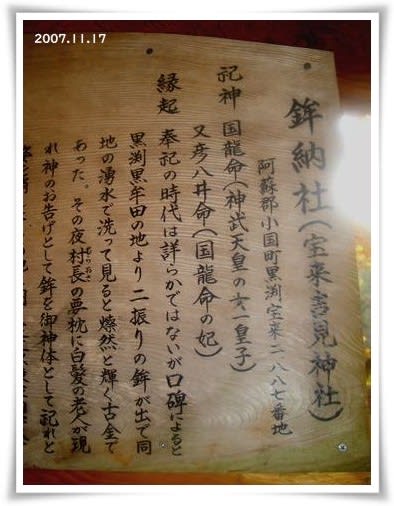 2007.11.17
鉾納社(宝来吉見神社)
阿蘇郡小国町黒渕宝来一八八七番地
祀神 国龍命(神武天皇の第一皇子)
又彦八井命(国龍命の妃)
縁起 奉祀の時代は詳らかではないが口碑によると
黒渕黒牟田の地より二振りの鉾が出で同
地の湧水で洗って見ると燦然と輝く古金で
あった。その夜村長の夢枕に白髪の老人が現
むらおさ
れ神のお告げとして鉾を御神体として祀れと